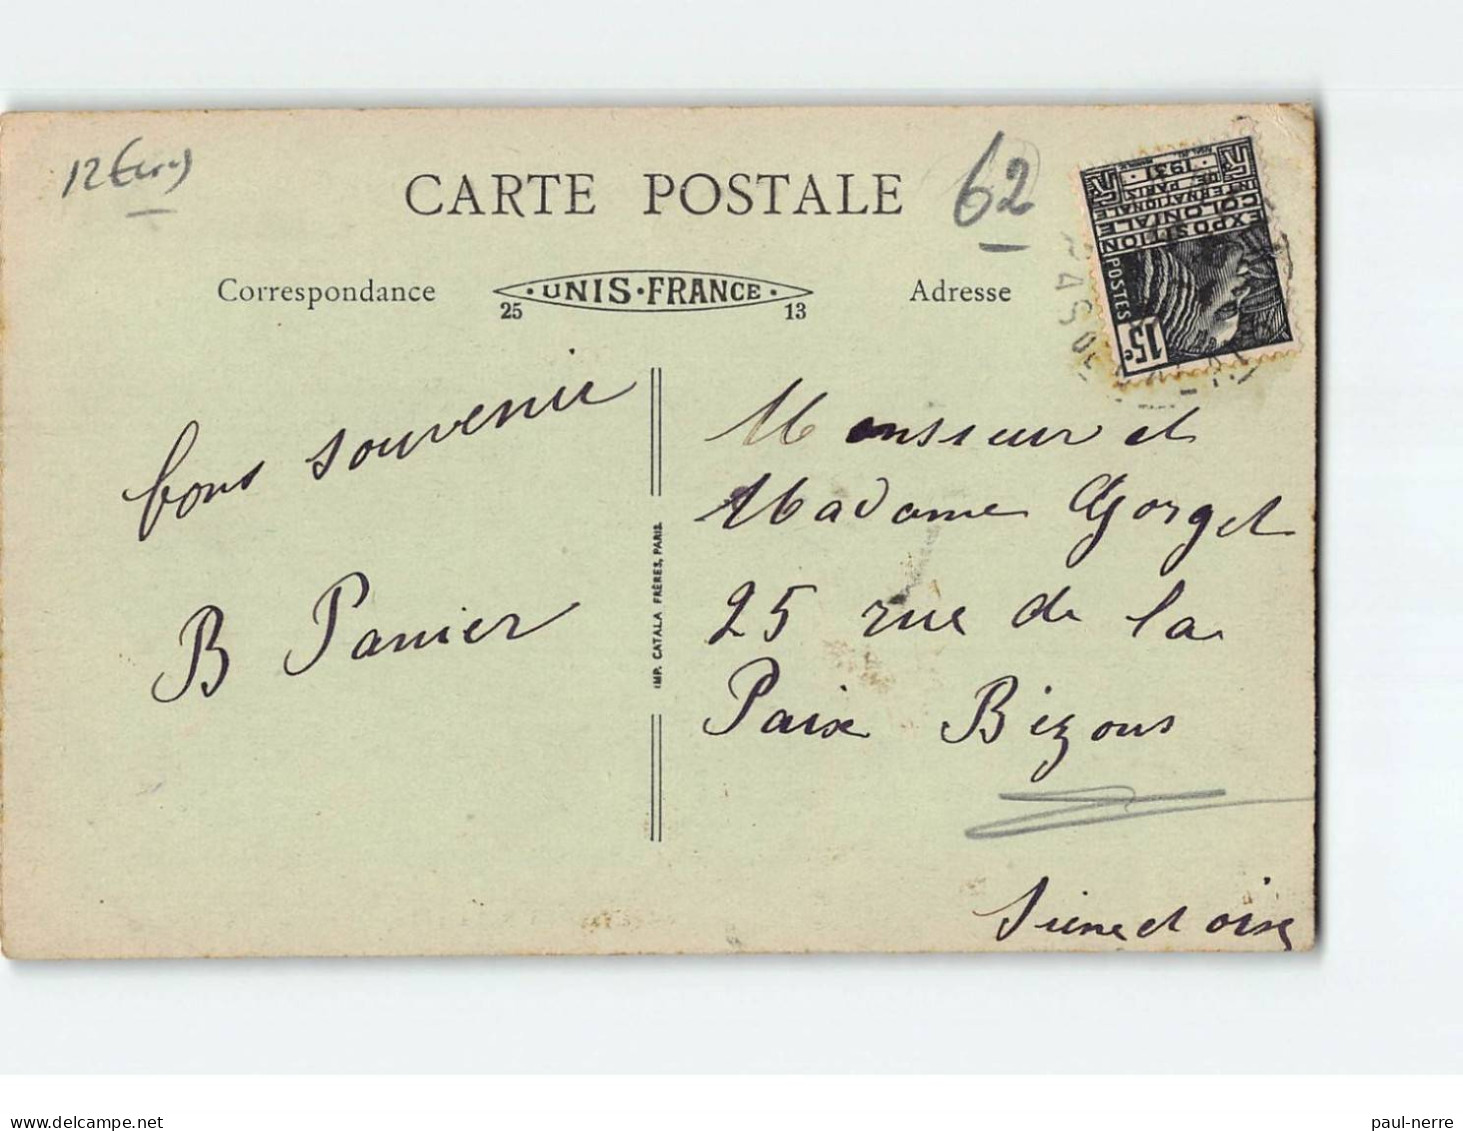 12 Euros
CARTE POSTALE
62
Correspondance
UNIS · FRANCE
25 13
Adresse
EXPOSITION
COLONIALE
INTERNATIONALE
DE PARIS
1931
POSTES
15c
bons souvenir
B Panier
IMP. CATALA FRÈRES, PARIS.
Monsieur et
Madame Gorget
25 rue de la
Paix Bizons
Sienne et oise
paul-nerre